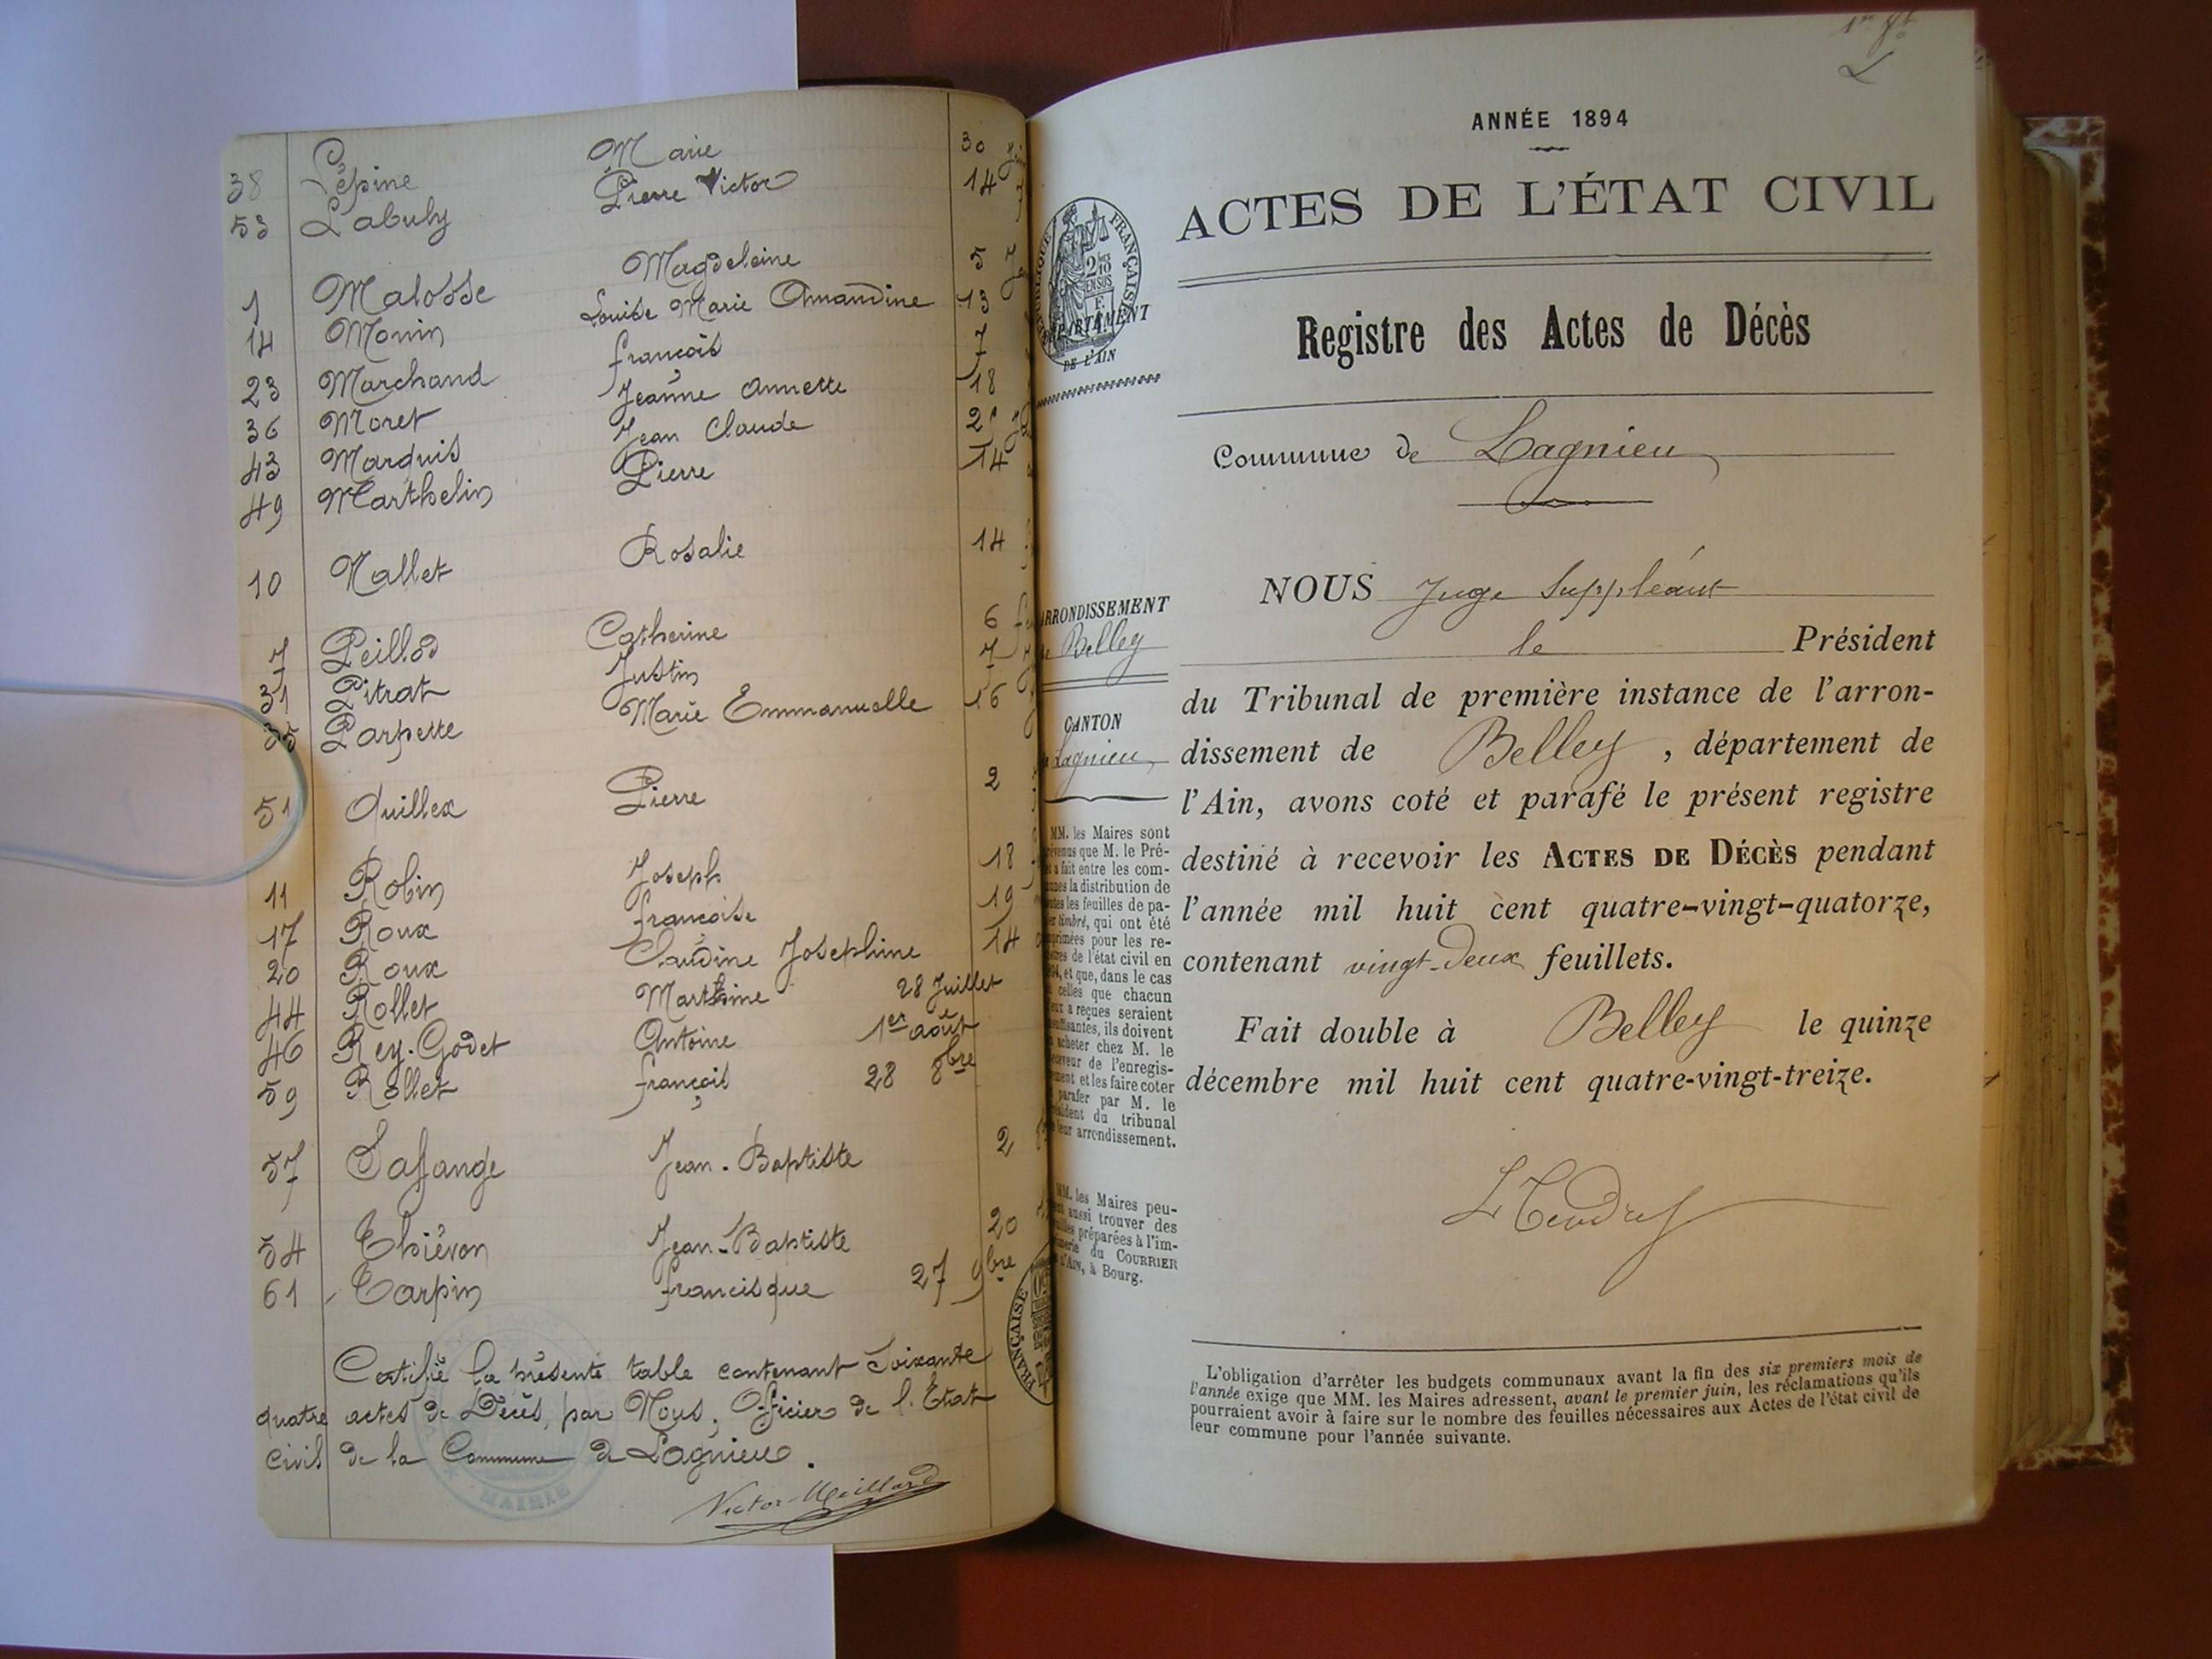 38 Lépine Marie 30
53 Labuly Pierre Victor 14
1 Malosse Magdeleine 5
14 Monin Louise Marie Amandine 13
23 Marchand François 7
36 Moret Jeanne Annette 18
43 Marquis Jean Claude
49 Marthelin Pierre 14
10 Nallet Rosalie 14
7 Peillod Catherine 6
31 Pitrat Justin 7
35 Parpette Marie Emmanuelle 16
51 Quillex Pierre 2
11 Robin Joseph 18
17 Roux Françoise 19
20 Roux Claudine Josephine 14
44 Rollet Marthine 28 Juillet
46 Rey-Godet Antoine 1er août
59 Rollet François 28 8bre
57 Jean-Baptiste 2
54 Thiévon Jean-Baptiste 20
61 Tarpin Francisque 27 9bre
Certifié la présente table contenant Soixante
quatre actes de Décès, par Nous, Officier de l'Etat
civil de la Commune de Lagnieu.
MAIRIE
Victor Meillard
ANNÉE 1894
ACTES DE L'ÉTAT CIVIL
RÉPUBLIQUE FRANÇAISE
2/10
EN SUS
DÉPARTEMENT
DE L'AIN
Registre des Actes de Décès
Commune de Lagnieu
NOUS Juge Suppléant
le Président
du Tribunal de première instance de l'arron-
dissement de Belley, département de
l'Ain, avons coté et parafé le présent registre
destiné à recevoir les ACTES DE DÉCÈS pendant
l'année mil huit cent quatre-vingt-quatorze,
contenant vingt-deux feuillets.
Fait double à Belley le quinze
décembre mil huit cent quatre-vingt-treize.
ARRONDISSEMENT
Belley
CANTON
Lagnieu
MM. les Maires sont
prévenus que M. le Pré-
fet a fait entre les com-
munes la distribution de
toutes les feuilles de pa-
pier timbré, qui ont été
imprimées pour les re-
gistres de l'état civil en
1894, et que, dans le cas
où celles que chacun
d'eux a reçues seraient
insuffisantes, ils doivent
en acheter chez M. le
Receveur de l'enregis-
trement et les faire coter
et parafer par M. le
Président du tribunal
de leur arrondissement.
MM. les Maires peu-
vent aussi trouver des
feuilles préparées à l'im-
primerie du COURRIER
de l'AIN, à Bourg.
FRANÇAISE
L'obligation d'arrêter les budgets communaux avant la fin des six premiers mois de
l'année exige que MM. les Maires adressent, avant le premier juin, les réclamations qu'ils
pourraient avoir à faire sur le nombre des feuilles nécessaires aux Actes de l'état civil de
leur commune pour l'année suivante.